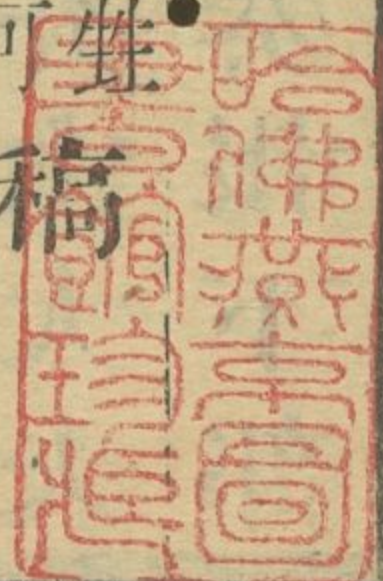 哈佛燕京圖
書館珍藏
甡
稿